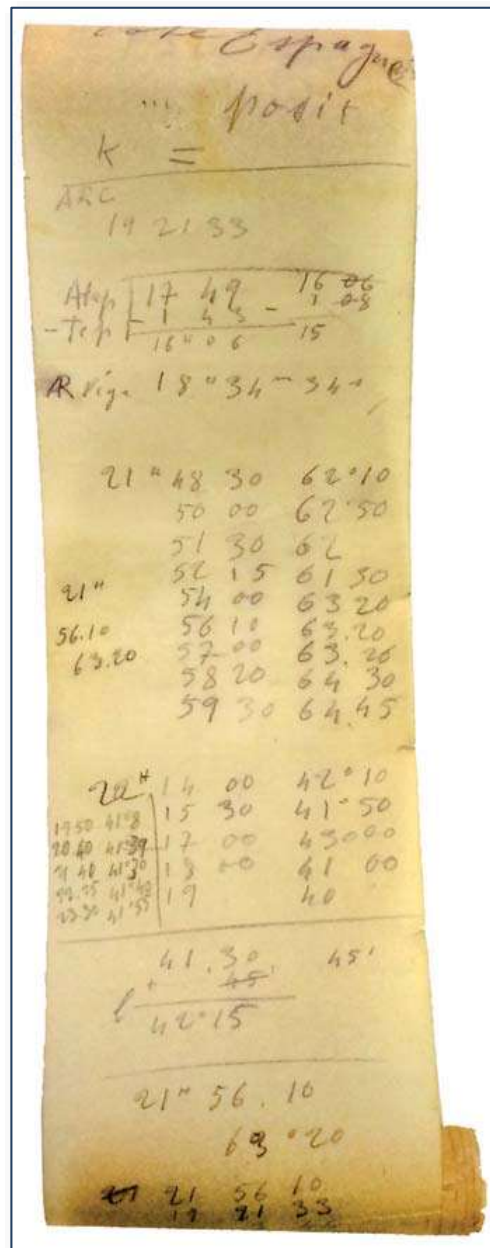 Espagne
posit
K =
ARC
19 21 33
17 49 16 06
- 1 43 - 1 08
16 H 06 15
AR Vég. 18 H 34 m 34 s
21 H 48 30 62°10
50 00 62°50
51 30 62
52 15 61 30
21 H 54 00 63 20
56.10 56 10 63.20
63.20 57 00 63.20
58 20 64 30
59 30 64.45
22 H 14 00 42°10
19 50 41°8 15 30 41°50
20.40 17 00 43000
21 40 18 00 41 00
41°40 19 40
23.30 41°55
41.30 45'
+ 45'
l 42°15
21 H 56.10
63°20
21 21 56 10
19 21 33